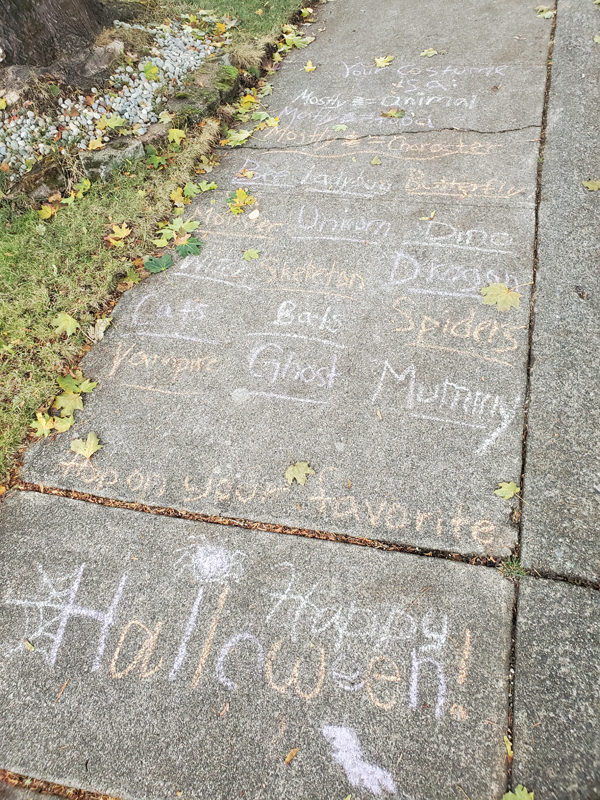 Your costume
is a:
Mostly = animal
Mostly =
Mostly = Character
Bee Ladybug Butterfly
Monster Unicorn Dino
Witch Skeleton Dragon
Cats Bats Spiders
Vampire Ghost Mummy
Hop on your favorite
Happy
Halloween!